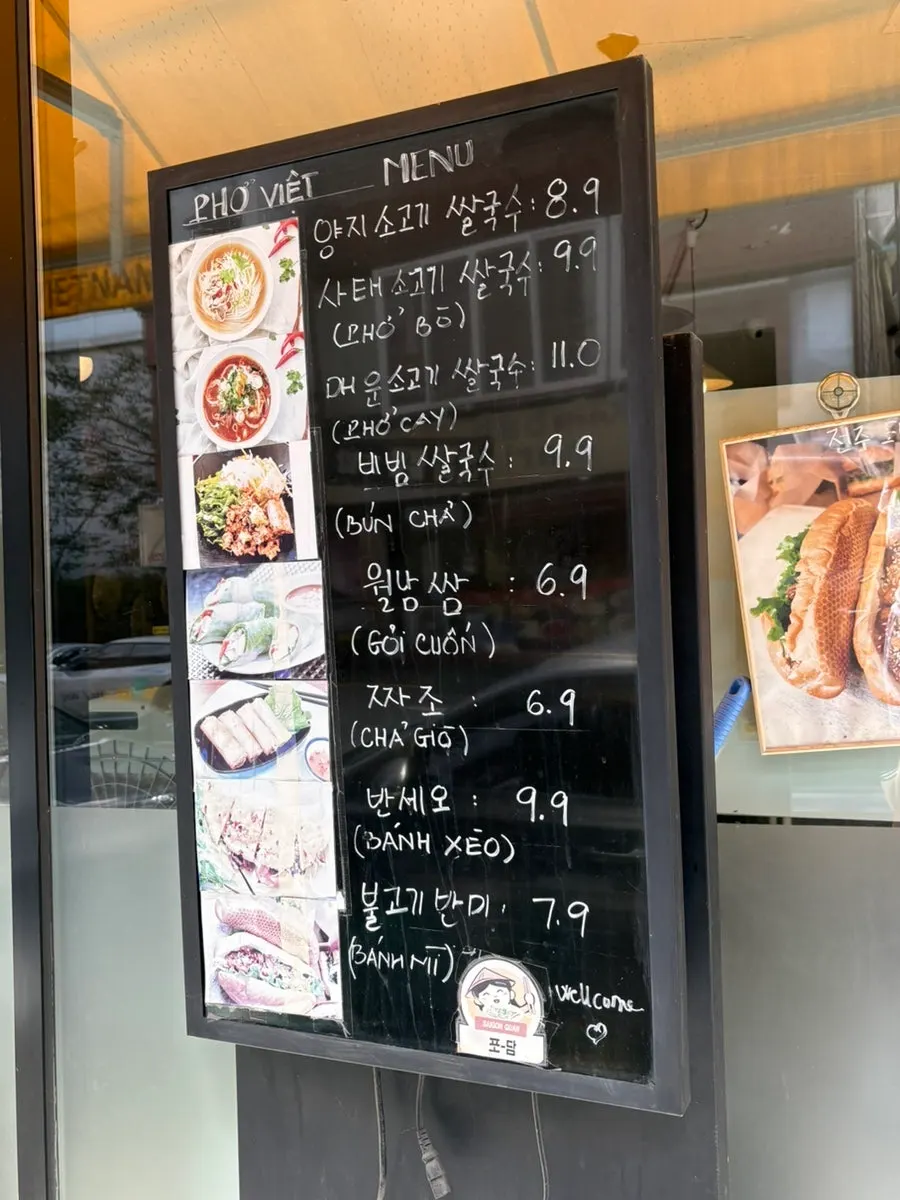 PHỞ VIỆT MENU
양지 소고기 쌀국수 : 8.9
사태 소고기 쌀국수 : 9.9
(PHỞ BÒ)
매운 소고기 쌀국수 : 11.0
(PHỞ CAY)
비빔 쌀국수 : 9.9
(BÚN CHẢ)
월남 쌈 : 6.9
(GỎI CUỐN)
짜조 : 6.9
(CHẢ GIÒ)
반세오 : 9.9
(BÁNH XÈO)
불고기 반미 : 7.9
(BÁNH MÌ)
Wellcome
SAIGON QUAN
포-담
IETNAM
전주